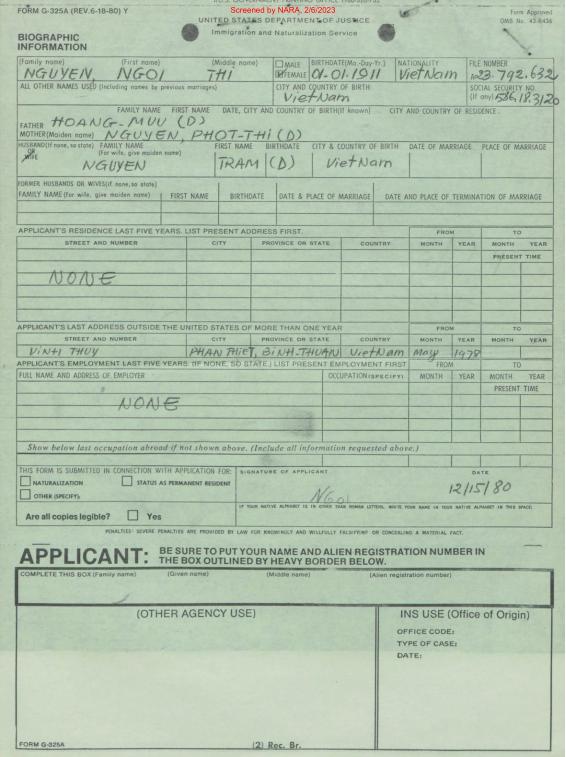 Screened by NARA, 2/6/2023
FORM G-325A (REV.6-18-80) Y
Form Approved
OMB No. 43-R436
UNITED STATES DEPARTMENT OF JUSTICE
Immigration and Naturalization Service
BIOGRAPHIC
INFORMATION
(Family name) (First name) (Middle name) MALE BIRTHDATE(Mo.-Day-Yr.) NATIONALITY FILE NUMBER
NGUYEN, NGOI THI FEMALE 01.01.1911 VietNam A-23.792.632
ALL OTHER NAMES USED (Including names by previous marriages) CITY AND COUNTRY OF BIRTH SOCIAL SECURITY NO.
VietNam (If any) 586.18.3120
FAMILY NAME FIRST NAME DATE, CITY AND COUNTRY OF BIRTH(If known) CITY AND COUNTRY OF RESIDENCE
FATHER HOANG-MUU (D)
MOTHER(Maiden name) NGUYEN, PHOT-THI (D)
HUSBAND(If none, so state) OR WIFE FAMILY NAME (For wife, give maiden name) FIRST NAME BIRTHDATE CITY & COUNTRY OF BIRTH DATE OF MARRIAGE PLACE OF MARRIAGE
NGUYEN TRAM (D) VietNam
FORMER HUSBANDS OR WIVES(if none,so state)
FAMILY NAME (For wife, give maiden name) FIRST NAME BIRTHDATE DATE & PLACE OF MARRIAGE DATE AND PLACE OF TERMINATION OF MARRIAGE
APPLICANT'S RESIDENCE LAST FIVE YEARS. LIST PRESENT ADDRESS FIRST. FROM TO
STREET AND NUMBER CITY PROVINCE OR STATE COUNTRY MONTH YEAR MONTH YEAR
PRESENT TIME
NONE
APPLICANT'S LAST ADDRESS OUTSIDE THE UNITED STATES OF MORE THAN ONE YEAR FROM TO
STREET AND NUMBER CITY PROVINCE OR STATE COUNTRY MONTH YEAR MONTH YEAR
VINH THUY PHAN THIET, BINH-THUAN VietNam May 1978
APPLICANT'S EMPLOYMENT LAST FIVE YEARS. (IF NONE, SO STATE.) LIST PRESENT EMPLOYMENT FIRST FROM TO
FULL NAME AND ADDRESS OF EMPLOYER OCCUPATION(SPECIFY) MONTH YEAR MONTH YEAR
PRESENT TIME
NONE
Show below last occupation abroad if not shown above. (Include all information requested above.)
THIS FORM IS SUBMITTED IN CONNECTION WITH APPLICATION FOR: SIGNATURE OF APPLICANT DATE
NATURALIZATION STATUS AS PERMANENT RESIDENT
OTHER (SPECIFY):
NGOI 12/15/80
Are all copies legible? Yes
IF YOUR NATIVE ALPHABET IS IN OTHER THAN ROMAN LETTERS, WRITE YOUR NAME IN YOUR NATIVE ALPHABET IN THIS SPACE:
PENALTIES: SEVERE PENALTIES ARE PROVIDED BY LAW FOR KNOWINGLY AND WILLFULLY FALSIFYING OR CONCEALING A MATERIAL FACT.
APPLICANT: BE SURE TO PUT YOUR NAME AND ALIEN REGISTRATION NUMBER IN
THE BOX OUTLINED BY HEAVY BORDER BELOW.
COMPLETE THIS BOX (Family name) (Given name) (Middle name) (Alien registration number)
(OTHER AGENCY USE) INS USE (Office of Origin)
OFFICE CODE:
TYPE OF CASE:
DATE:
FORM G-325A (2) Rec. Br.